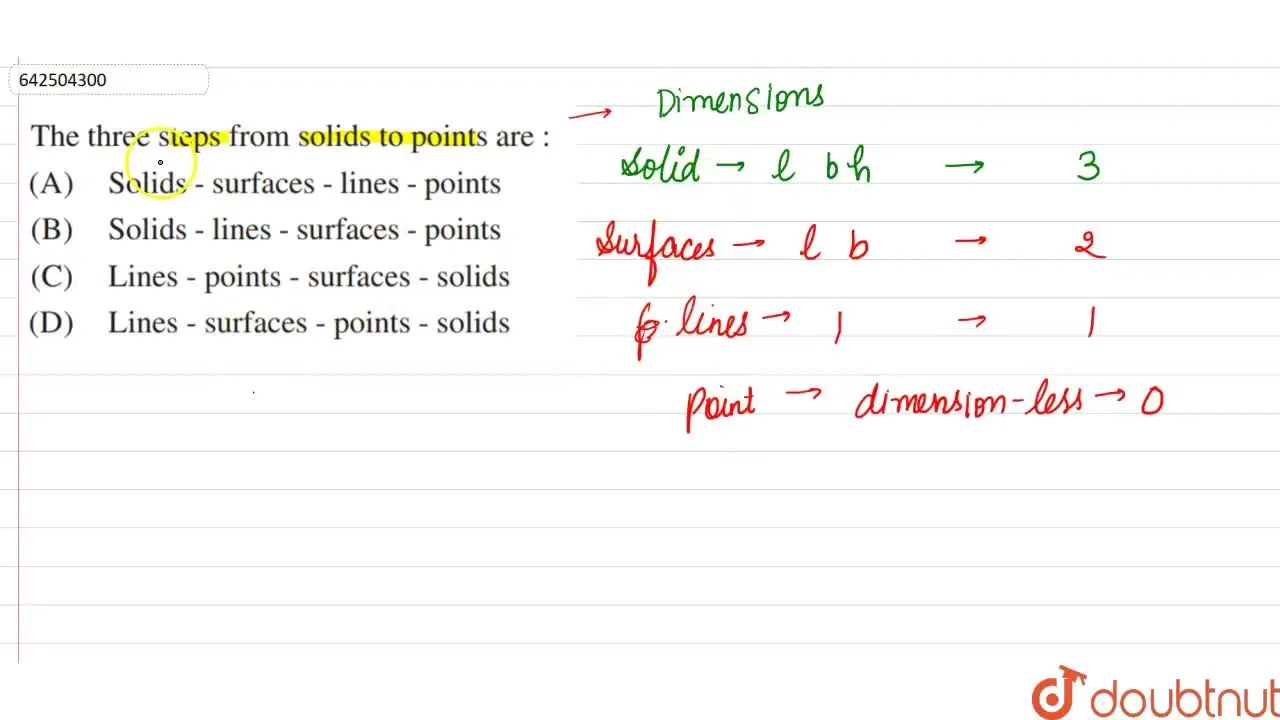 642504300
The three steps from solids to points are :
(A) Solids - surfaces - lines - points
(B) Solids - lines - surfaces - points
(C) Lines - points - surfaces - solids
(D) Lines - surfaces - points - solids
→ Dimensions
Solid → l b h → 3
Surfaces → l b → 2
lines → l → 1
Point → dimension-less → 0
doubtnut